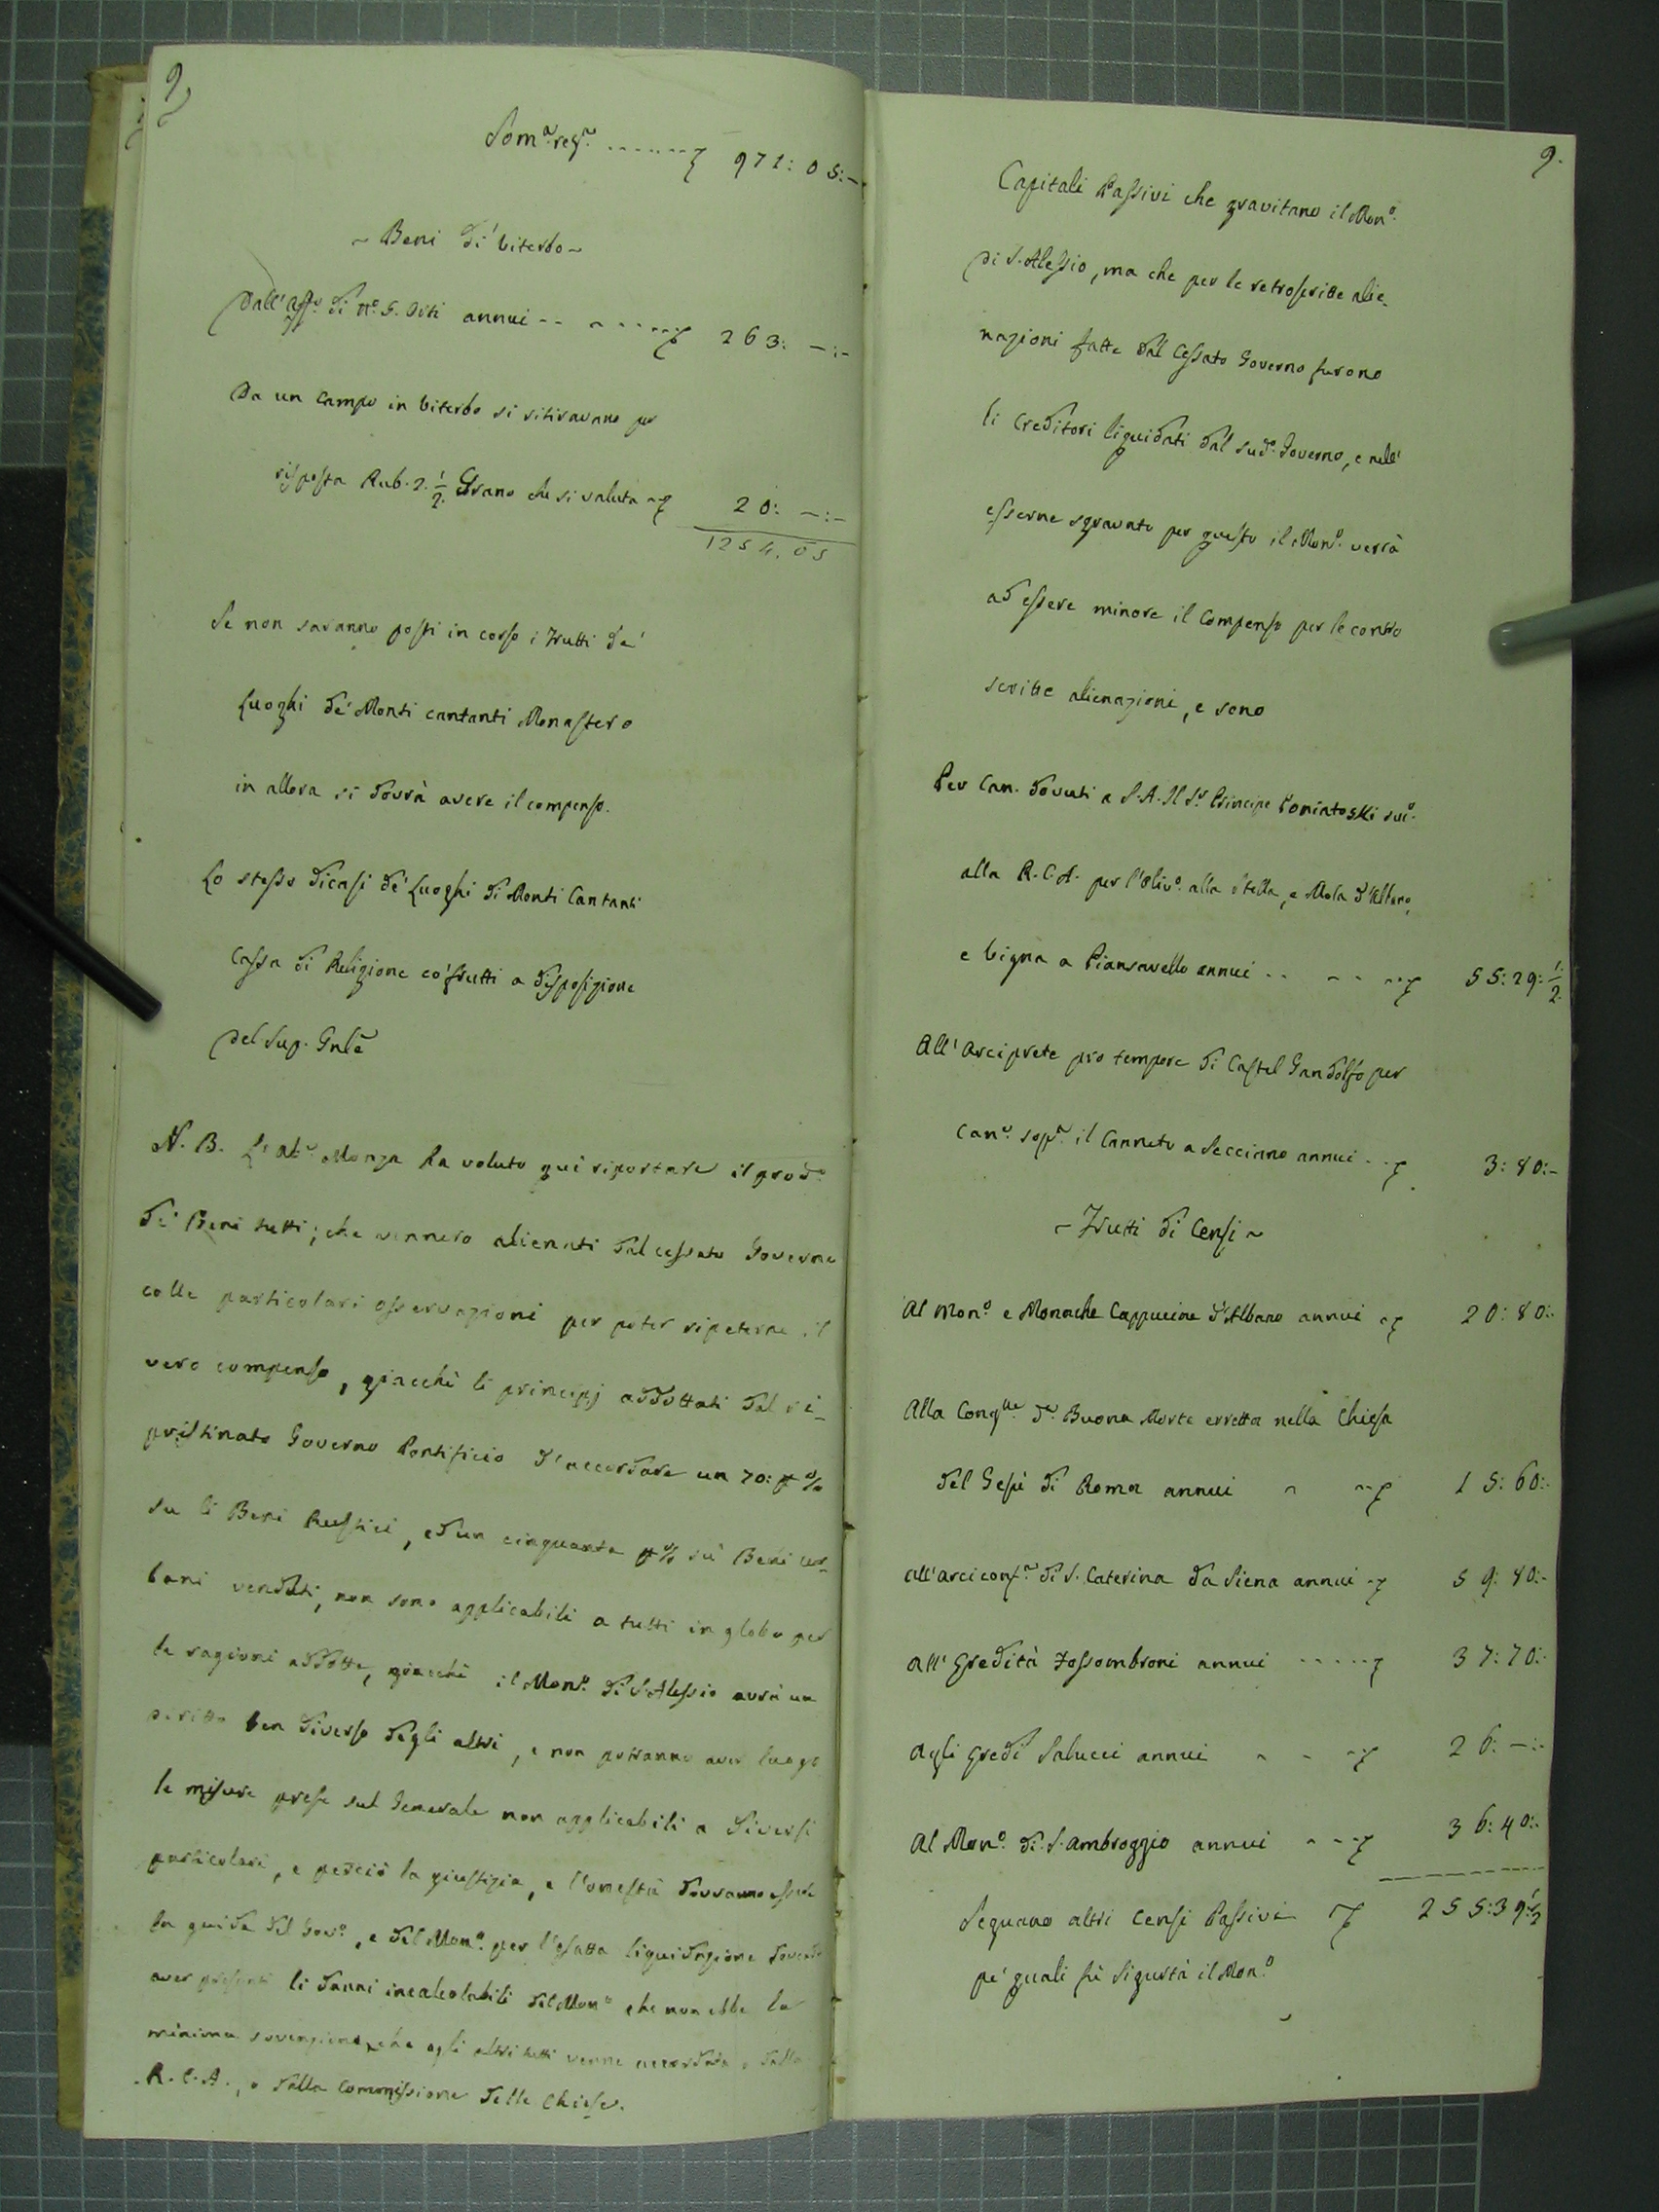 9
Som.ª seg.ª ....... 971: 05:-
~ Beni di Viterbo ~
Dall'aff.º di nº 5. Orti annui -- ------ 263: -:-
Da un Campo in Viterbo si ritiravano per
risposta Rub. 2. 1/2. Grano che si valuta -- 20: -:-
1254.05
Se non saranno posti in corso i frutti de'
Luoghi de' Monti cantanti Monastero
in allora si dovrà avere il compenso.
Lo stesso dicasi de' Luoghi di Monti Cantanti
Cassa di Religione co' frutti a disposizione
del Sup. Gnle
N. B. L'Ab.e Monza ha voluto qui riportare il prod.º
de' Beni tutti; che vennero alienati dal cessato Governo
colle particolari osservazioni per poter ripeterne il
vero compenso, giacchè li principj addottati dal ri-
pristinato Governo Pontificio d'accordare un 70: p %
su li Beni Rustici, ed un cinquanta p % sù Beni ur-
bani venduti, non sono applicabili a tutti in globo per
le ragioni addotte, giacchè il Mon.º di S. Alessio avrà un
diritto ben diverso degli altri, e non potranno aver luogo
le misure prese sul Generale non applicabili a diversi
particolari, e perciò la giustizia, e l'onestà dovranno essere
la guida del Gov.º, e del Mon.º per l'esatta liquidazione dovendo
aver presenti li danni incalcolabili del Mon.º che non ebbe la
minima sovvenzione, che agli altri tutti venne accordata o dalla
R. C. A., o dalla Commissione delle Chiese.
9.
Capitali Passivi che gravitano il Mon.º
di S. Alessio, ma che per le retroscritte alie-
nazioni fatte dal Cessato Governo furono
li Creditori liquidati dal sud.º Governo, e nell'
esserne sgravato per questo il Mon.º verrà
ad essere minore il Compenso per le contro
scritte alienazioni, e sono
Per Can. dovuti a S. A. Il S.r Principe Poniatoski suc.º
alla R. C. A. per l'Oliv.º alla Stella, e Mola d'Albano,
e Vigna a Piansavello annui .. -- --- 55: 29: 1/2.
All' Arciprete pro tempore di Castel Gandolfo per
Can.e sop.ª il Canneto a Seccianno annui -- 3: 80:-
~ Frutti di Censi ~
Al Mon.º e Monache Cappucine d'Albano annui -- 20: 80:-
Alla Cong.ne d.ª Buona Morte erretta nella Chiesa
del Gesù di Roma annui - -- 15: 60:-
All'Arciconf.ª di S. Caterina da Siena annui -- 59: 80:-
All' Eredità Fossombroni annui ----- 37: 70:-
Agli Eredi Salucci annui - - -- 26: -:-
Al Mon.º di S. Ambroggio annui - --- 36: 40:-
Seguano altri Censi Passivi -- 255: 39: 1/2
pe' quali fù Sigurtà il Mon.º